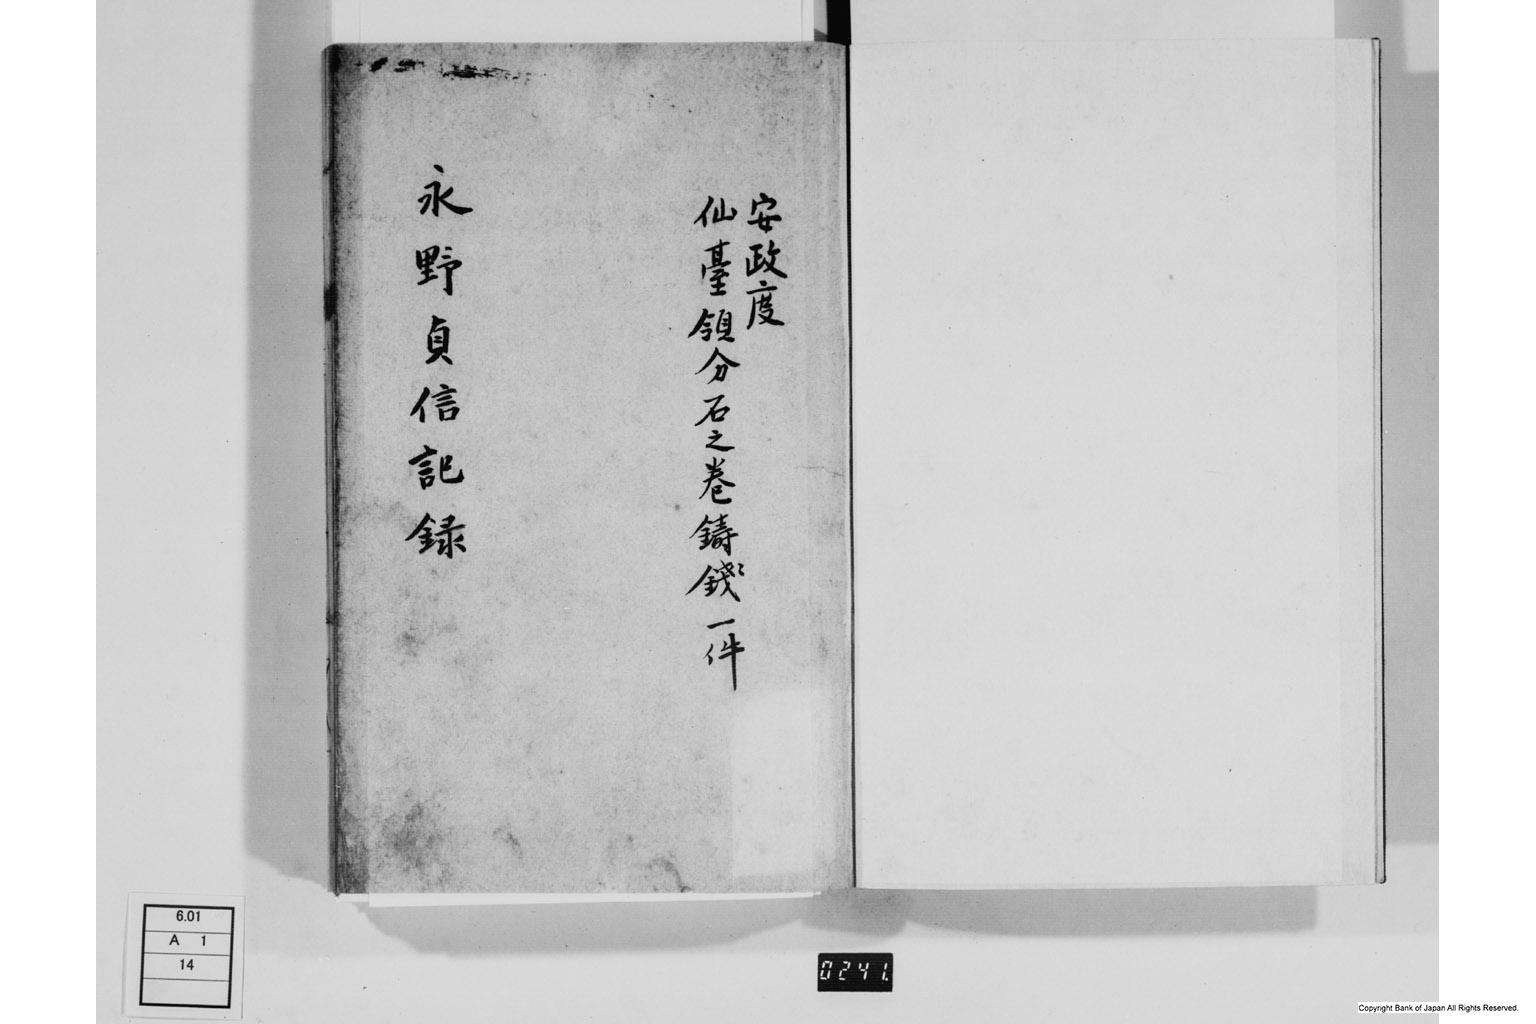 安政度
仙臺領分石之巻鋳銭一件
永野貞信記録
6.01
A 1
14
0241.
Copyright Bank of Japan All Rights Reserved.